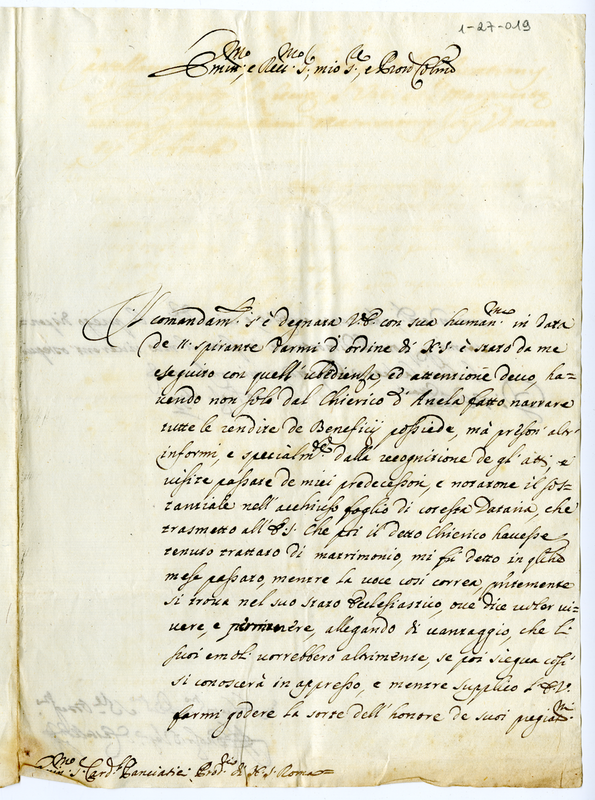 1-27-019
Emin.mo e Rev.mo S.r, mio S.r, e Pron Col.mo
Il comandam.to s'è degnata V.E. con sua human.ma in data
de 11. spirante darmi d'ordine di N.S. è stato da me
eseguito con quell'ubidienza, ed attentione devo, ha=
vendo non solo dal Chierico d'Avela fatto narrare
tutte le rendite de Beneficij possiede, mà préson' altr'
informi, e specialm.te dalla recognitione de gl'atti, e
visite passate de miei predecessori, e notatone il sos=
tantiale nell'acchiuso foglio di cotesta Dataria, che
trasmetto all'E.S. Che poi il detto Chierico havesse
tenuto trattato di matrimonio, mi fù detto in
mese passato, mentre la voce così correa, p̃ntemente
si trova nel suo stato Ecclesiastico, ove dice voler vi=
vere, e allegando di vantaggio, che li
suoi emoli vorrebbero altrimente, se poi siegua così
si conoscerà in appresso, e mentre supplico l'E.V.
farmi godere la sorte dell'honore de suoi pregiat.mi
Emin.mo S.r Card.l Panciatici Prod.rio di N.S. Roma